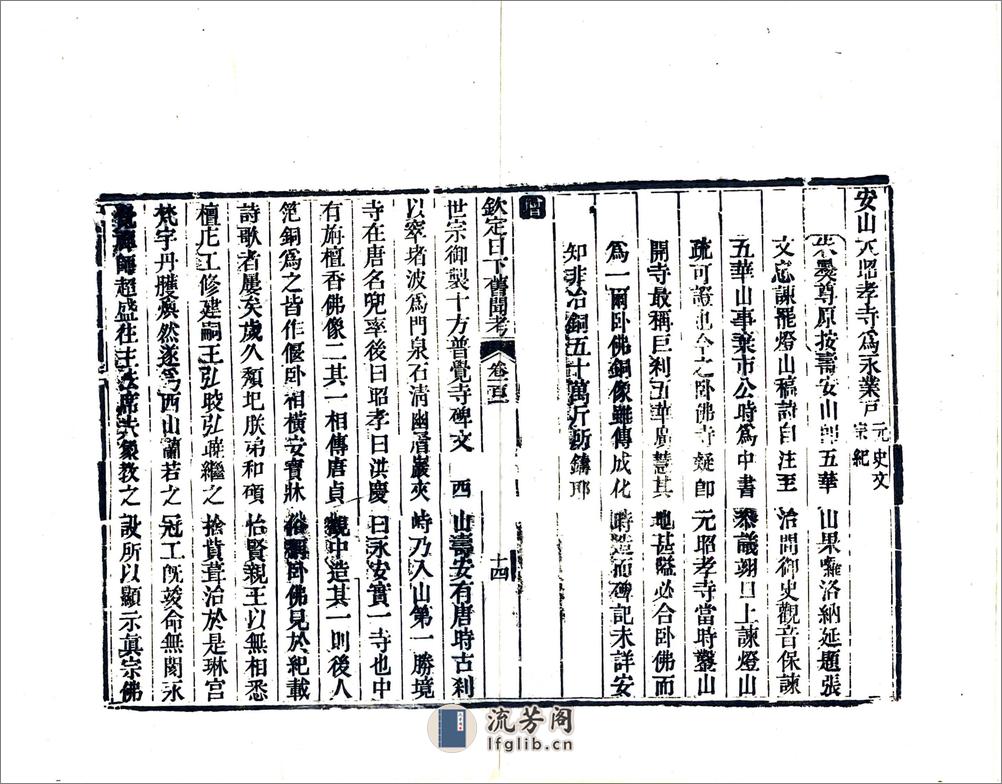 安山大昭孝寺爲永業戶 元史文宗紀
朱彝尊原按壽安山卽五華山果囉洛納延題張
文忠諫罷燈山稿詩自注至治間御史觀音保諫
五華山事棄市公時爲中書叅議翊日上諫燈山
疏可證也今之臥佛寺疑卽元昭孝寺當時鑿山
開寺最稱巨刹五華廣慧其地甚隘必合臥佛而
爲一爾臥佛銅像雖傳成化時造而碑記未詳安
知非冶銅五十萬斤所鑄耶
增
欽定日下舊聞考 卷 十四
世宗御製十方普覺寺碑文 西山壽安有唐時古刹
以窣堵波爲門泉石清幽層巖夾峙乃入山第一勝境
寺在唐名兜率後曰昭孝曰洪慶曰永安實一寺也中
有旃檀香佛像二其一相傳唐貞觀中造其一則後人
笵銅爲之皆作偃臥相橫安寶牀俗稱臥佛見於紀載
詩歌者屢矣歲久頹圮朕弟和碩怡賢親王以無相悉
檀庀工修建嗣王弘晈弘 繼之捨貲葺治於是琳宮
梵宇丹雘煥然遂爲西山蘭若之冠工旣竣命無閡永
覺禪師超盛往主法席夫象敎之設所以顯示眞宗佛
流芳阁
lfglib.cn